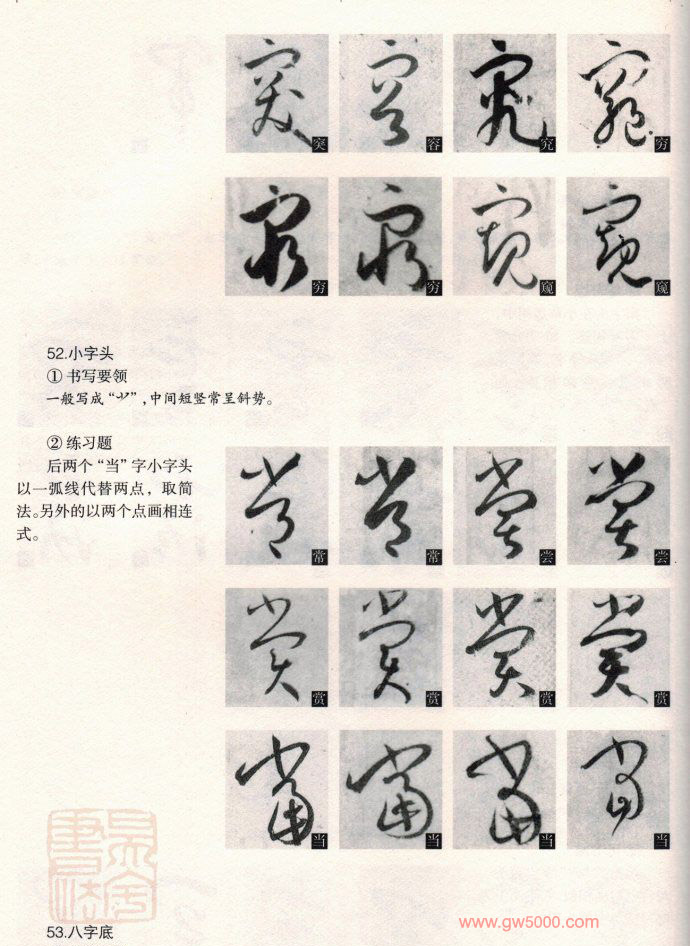 突 容 究 穷
穷 穷 窥 窥
52.小字头
① 书写要领
一般写成“⺌”,中间短竖常呈斜势。
② 练习题
后两个“当”字小字头
以一弧线代替两点，取简
法。另外的以两个点画相连
式。
常 常 尝 尝
赏 赏 赏 赏
当 当 当 当
53.八字底
www.gw5000.com